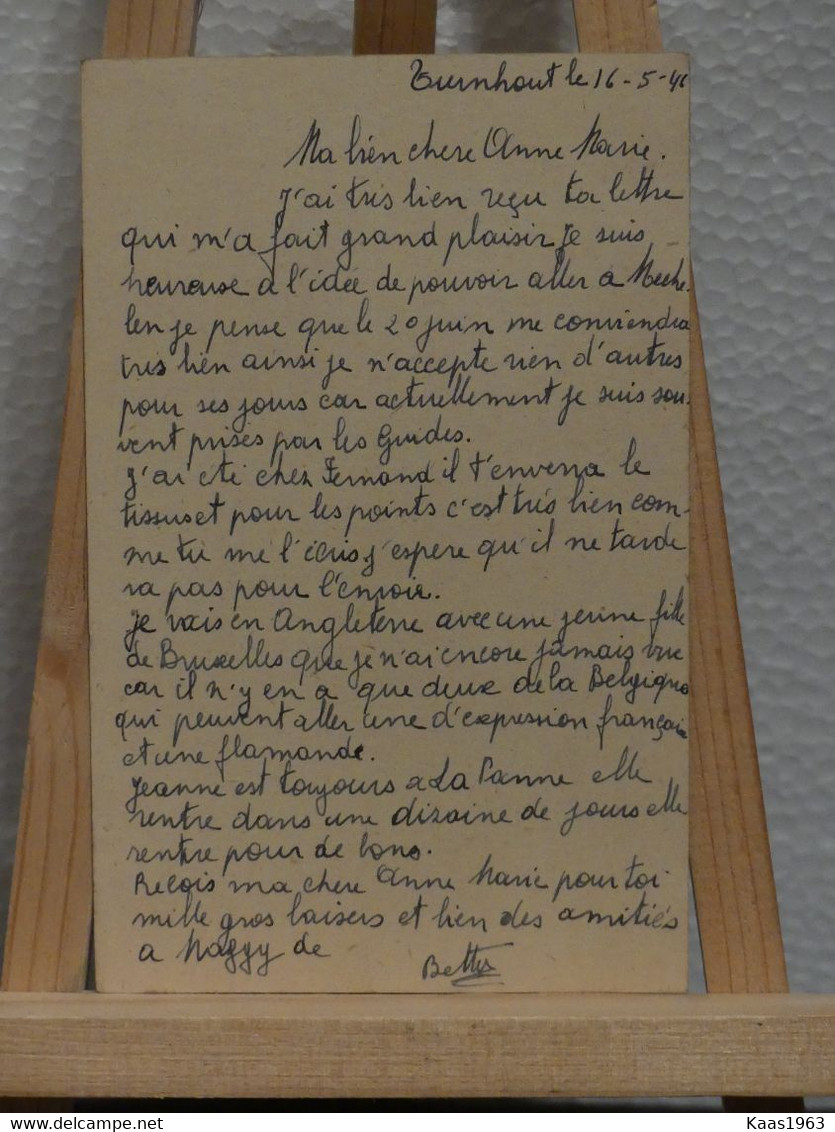 Turnhout le 16-5-46
Ma bien chere Anne Marie.
J'ai très bien reçu ta lettre
qui m'a fait grand plaisir je suis
heureuse a l'idée de pouvoir aller a Meche-
len je pense que le 20 juin me conviendra
très bien ainsi je n'accepte rien d'autres
pour ses jours car actuellement je suis sou-
vent prises par les Guides.
J'ai eté chez Fernand il t'enverra le
tissus et pour les points c'est très bien com-
me tu me l'écris j'espere qu'il ne tarde
ra pas pour l'envoie.
Je vais en Angleterre avec une jeune fille
de Bruxelles que je n'ai encore jamais vue
car il n'y en a que deux de la Belgique
qui peuvent aller une d'expression français
et une flamande.
Jeanne est toujours a La Panne elle
rentre dans une dizaine de jours elle
rentre pour de bons.
Recois ma chere Anne Marie pour toi
mille gros baisers et bien des amitiés
a Maggy de
Betty
Kaas1963